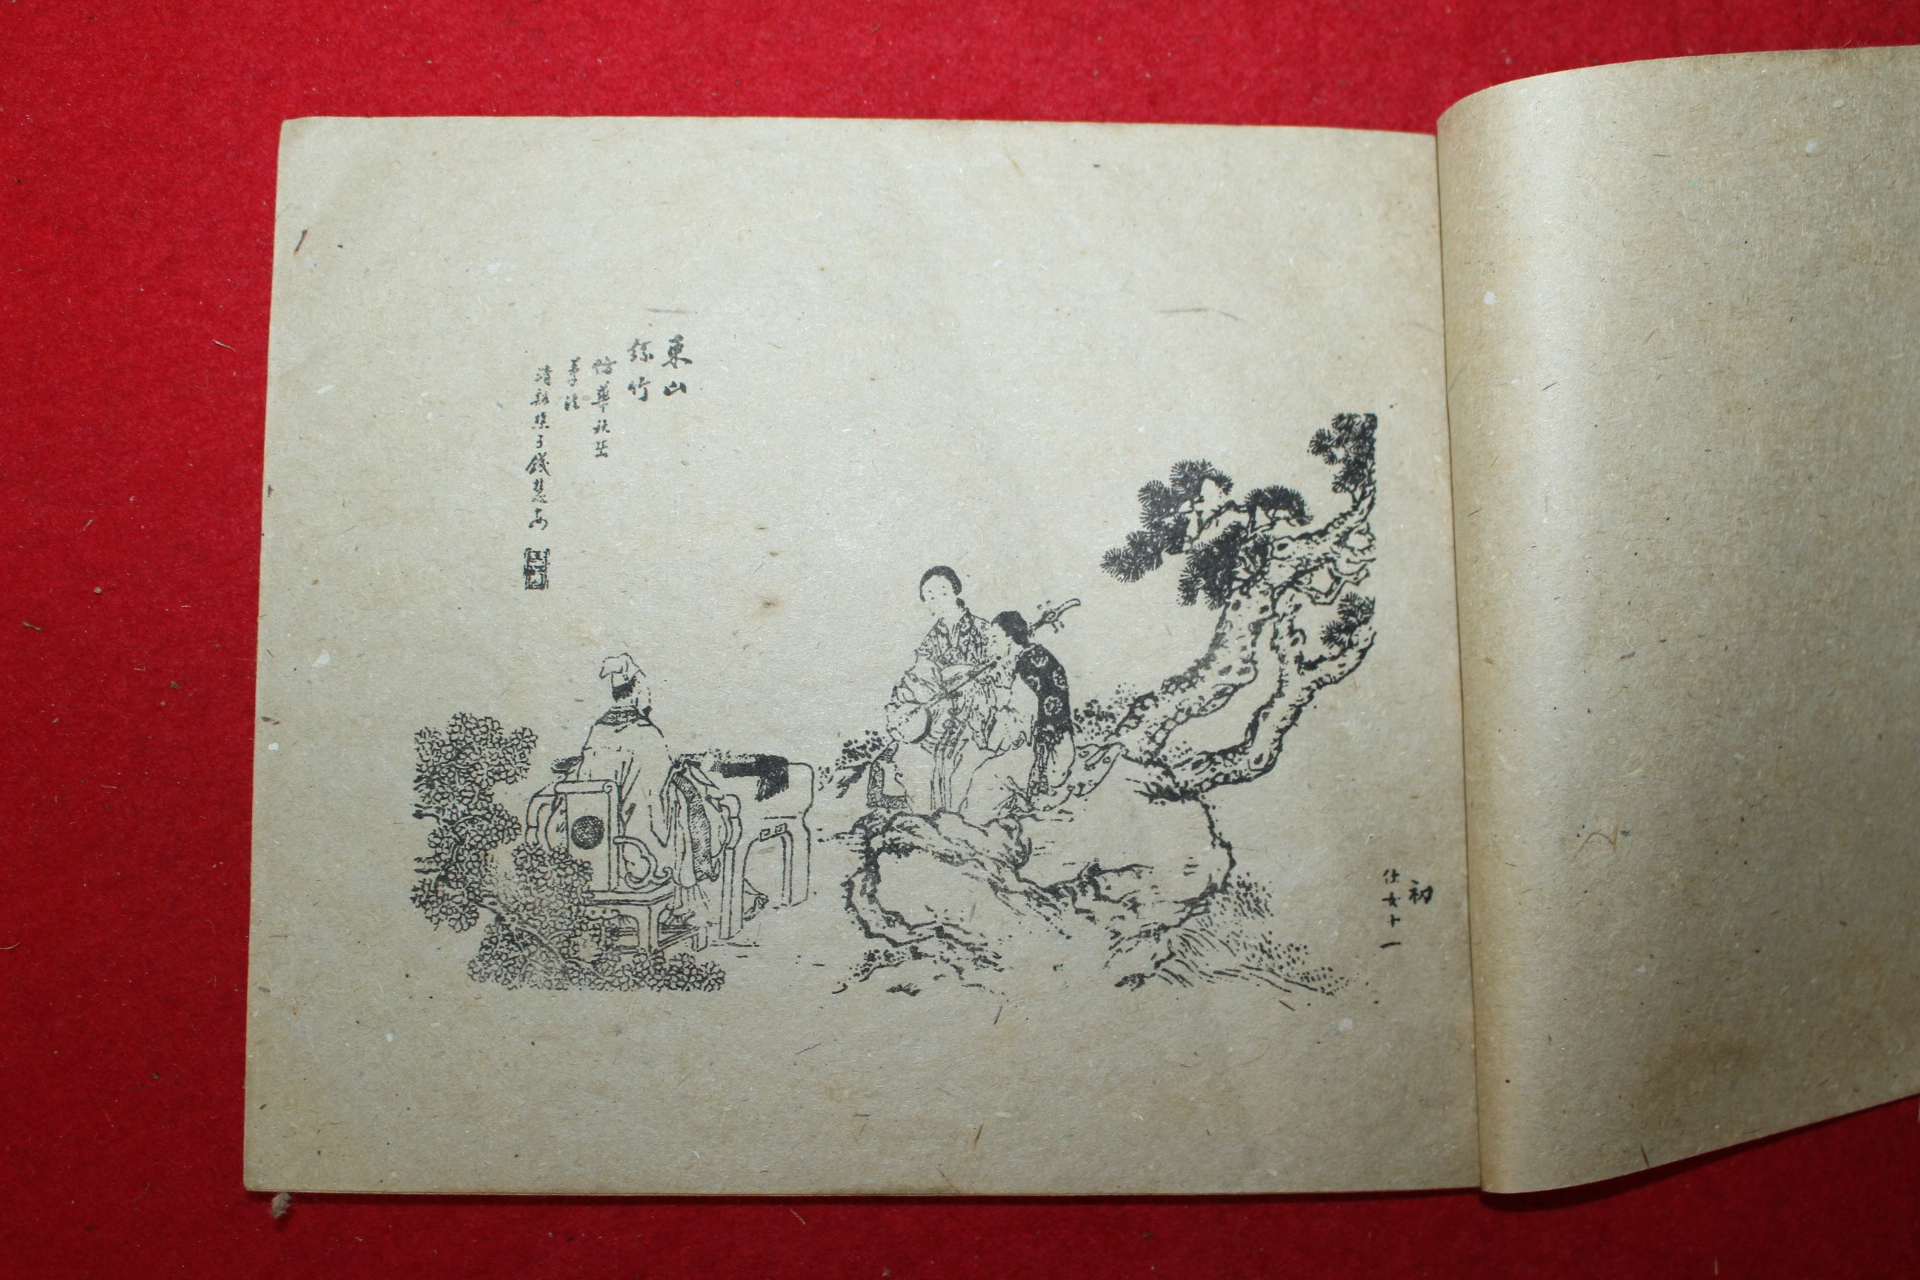 東山
絲竹
仿華秋岳
筆法
清谿樵子錢慧安
初
仕女十一